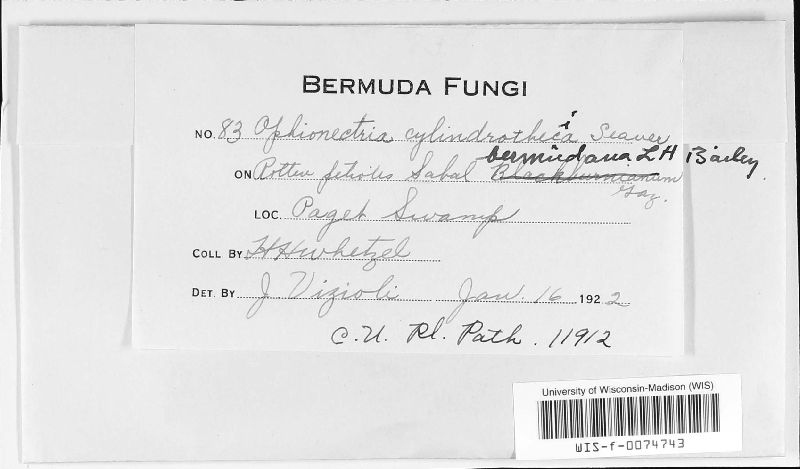 BERMUDA FUNGI
NO. 83 Ophionectria cylindrotheciia Seaver
bermudana LH Bailey.
ON Rotten petioles Sabal Blackburnianum
Glaz.
LOC. Paget Swamp
COLL BY HHWhetzel
DET. BY J Vizioli Jan. 16 1922
C.U. Pl. Path. 11912
University of Wisconsin-Madison (WIS)
WIS-f-0074743